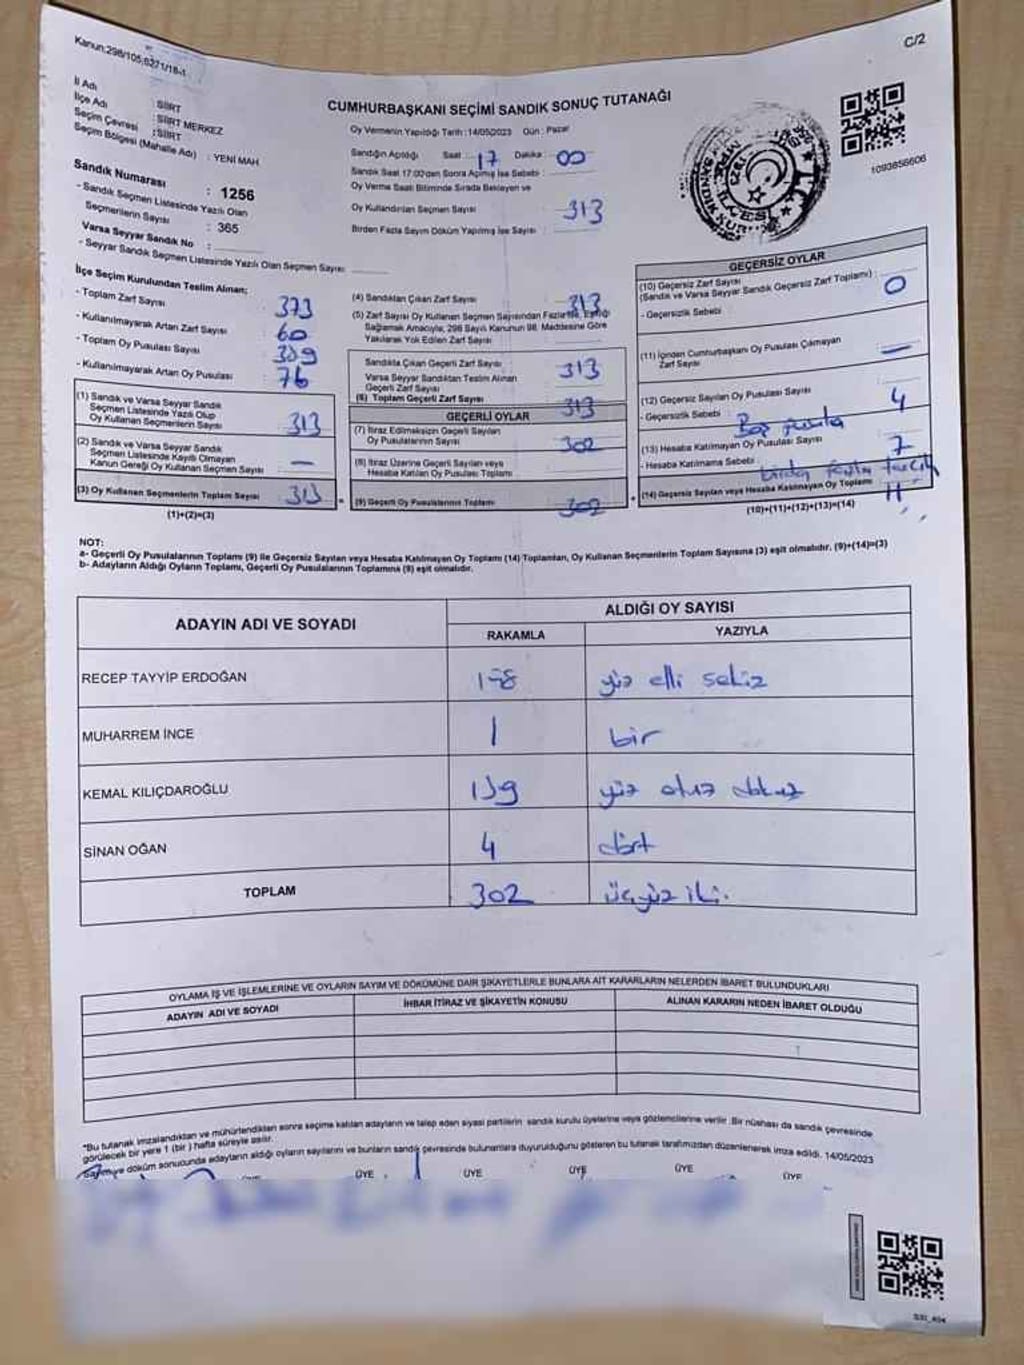 Kanun;298/105,6271/18-1
C/2
İl Adı : SİİRT
İlçe Adı : SİİRT MERKEZ
Seçim Çevresi : SİİRT
Seçim Bölgesi (Mahalle Adı) : YENİ MAH.
CUMHURBAŞKANI SEÇİMİ SANDIK SONUÇ TUTANAĞI
Oy Vermenin Yapıldığı Tarih : 14/05/2023 Gün : Pazar
Sandığın Açıldığı Saat : 17 Dakika : 00
Sandık Saat 17:00'den Sonra Açılmış İse Sebebi :
Oy Verme Saati Bitiminde Sırada Bekleyen ve
Oy Kullandırılan Seçmen Sayısı : 313
Birden Fazla Sayım Döküm Yapılmış İse Sayısı :
1093856606
Sandık Numarası : 1256
- Sandık Seçmen Listesinde Yazılı Olan
Seçmenlerin Sayısı : 365
Varsa Seyyar Sandık No :
- Seyyar Sandık Seçmen Listesinde Yazılı Olan Seçmen Sayısı:
İlçe Seçim Kurulundan Teslim Alınan;
- Toplam Zarf Sayısı : 373
- Kullanılmayarak Artan Zarf Sayısı : 60
- Toplam Oy Pusulası Sayısı : 389
- Kullanılmayarak Artan Oy Pusulası : 76
(1) Sandık ve Varsa Seyyar Sandık
Seçmen Listesinde Yazılı Olup
Oy Kullanan Seçmenlerin Sayısı : 313
(2) Sandık ve Varsa Seyyar Sandık
Seçmen Listesinde Kayıtlı Olmayan
Kanun Gereği Oy Kullanan Seçmen Sayısı : —
(3) Oy Kullanan Seçmenlerin Toplam Sayısı : 313
(1)+(2)=(3)
(4) Sandıktan Çıkan Zarf Sayısı : 313
(5) Zarf Sayısı Oy Kullanan Seçmen Sayısından Fazla İse, Eşitliği
Sağlamak Amacıyla, 298 Sayılı Kanunun 98. Maddesine Göre
Yakılarak Yok Edilen Zarf Sayısı :
Sandıkta Çıkan Geçerli Zarf Sayısı : 313
Varsa Seyyar Sandıktan Teslim Alınan
Geçerli Zarf Sayısı :
(6) Toplam Geçerli Zarf Sayısı : 313
GEÇERLİ OYLAR
(7) İtiraz Edilmeksizin Geçerli Sayılan
Oy Pusulalarının Sayısı : 302
(8) İtiraz Üzerine Geçerli Sayılan veya
Hesaba Katılan Oy Pusulası Toplamı :
(9) Geçerli Oy Pusulalarının Toplamı : 302
GEÇERSİZ OYLAR
(10) Geçersiz Zarf Sayısı
(Sandık ve Varsa Seyyar Sandık Geçersiz Zarf Toplamı) : 0
- Geçersizlik Sebebi :
(11) İçinden Cumhurbaşkanı Oy Pusulası Çıkmayan
Zarf Sayısı : —
(12) Geçersiz Sayılan Oy Pusulası Sayısı : 4
- Geçersizlik Sebebi : Boş pusula
(13) Hesaba Katılmayan Oy Pusulası Sayısı : 7
- Hesaba Katılmama Sebebi : birden fazla tercih
(14) Geçersiz Sayılan veya Hesaba Katılmayan Oy Toplamı : 11
(10)+(11)+(12)+(13)=(14)
NOT:
a- Geçerli Oy Pusulalarının Toplamı (9) ile Geçersiz Sayılan veya Hesaba Katılmayan Oy Toplamı (14) Toplamları, Oy Kullanan Seçmenlerin Toplam Sayısına (3) eşit olmalıdır. (9)+(14)=(3)
b- Adayların Aldığı Oyların Toplamı, Geçerli Oy Pusulalarının Toplamına (9) eşit olmalıdır.
ADAYIN ADI VE SOYADI
ALDIĞI OY SAYISI
RAKAMLA YAZIYLA
RECEP TAYYİP ERDOĞAN 158 yüz elli sekiz
MUHARREM İNCE 1 bir
KEMAL KILIÇDAROĞLU 139 yüz otuz dokuz
SİNAN OĞAN 4 dört
TOPLAM 302 üçyüz iki.
OYLAMA İŞ VE İŞLEMLERİNE VE OYLARIN SAYIM VE DÖKÜMÜNE DAİR ŞİKAYETLERLE BUNLARA AİT KARARLARIN NELERDEN İBARET BULUNDUKLARI
ADAYIN ADI VE SOYADI İHBAR İTİRAZ VE ŞİKAYETİN KONUSU ALINAN KARARIN NEDEN İBARET OLDUĞU
*Bu tutanak imzalandıktan ve mühürlendikten sonra seçime katılan adayların ve talep eden siyasi partilerin sandık kurulu üyelerine veya gözlemcilerine verilir. Bir nüshası da sandık çevresinde
görülecek bir yere 1 (bir) hafta süreyle asılır.
Sayım ve döküm sonucunda adayların aldığı oyların sayılarını ve bunların sandık çevresinde bulunanlara duyurulduğunu gösteren bu tutanak tarafımızdan düzenlenerek imza edildi. 14/05/2023
ÜYE ÜYE ÜYE ÜYE ÜYE